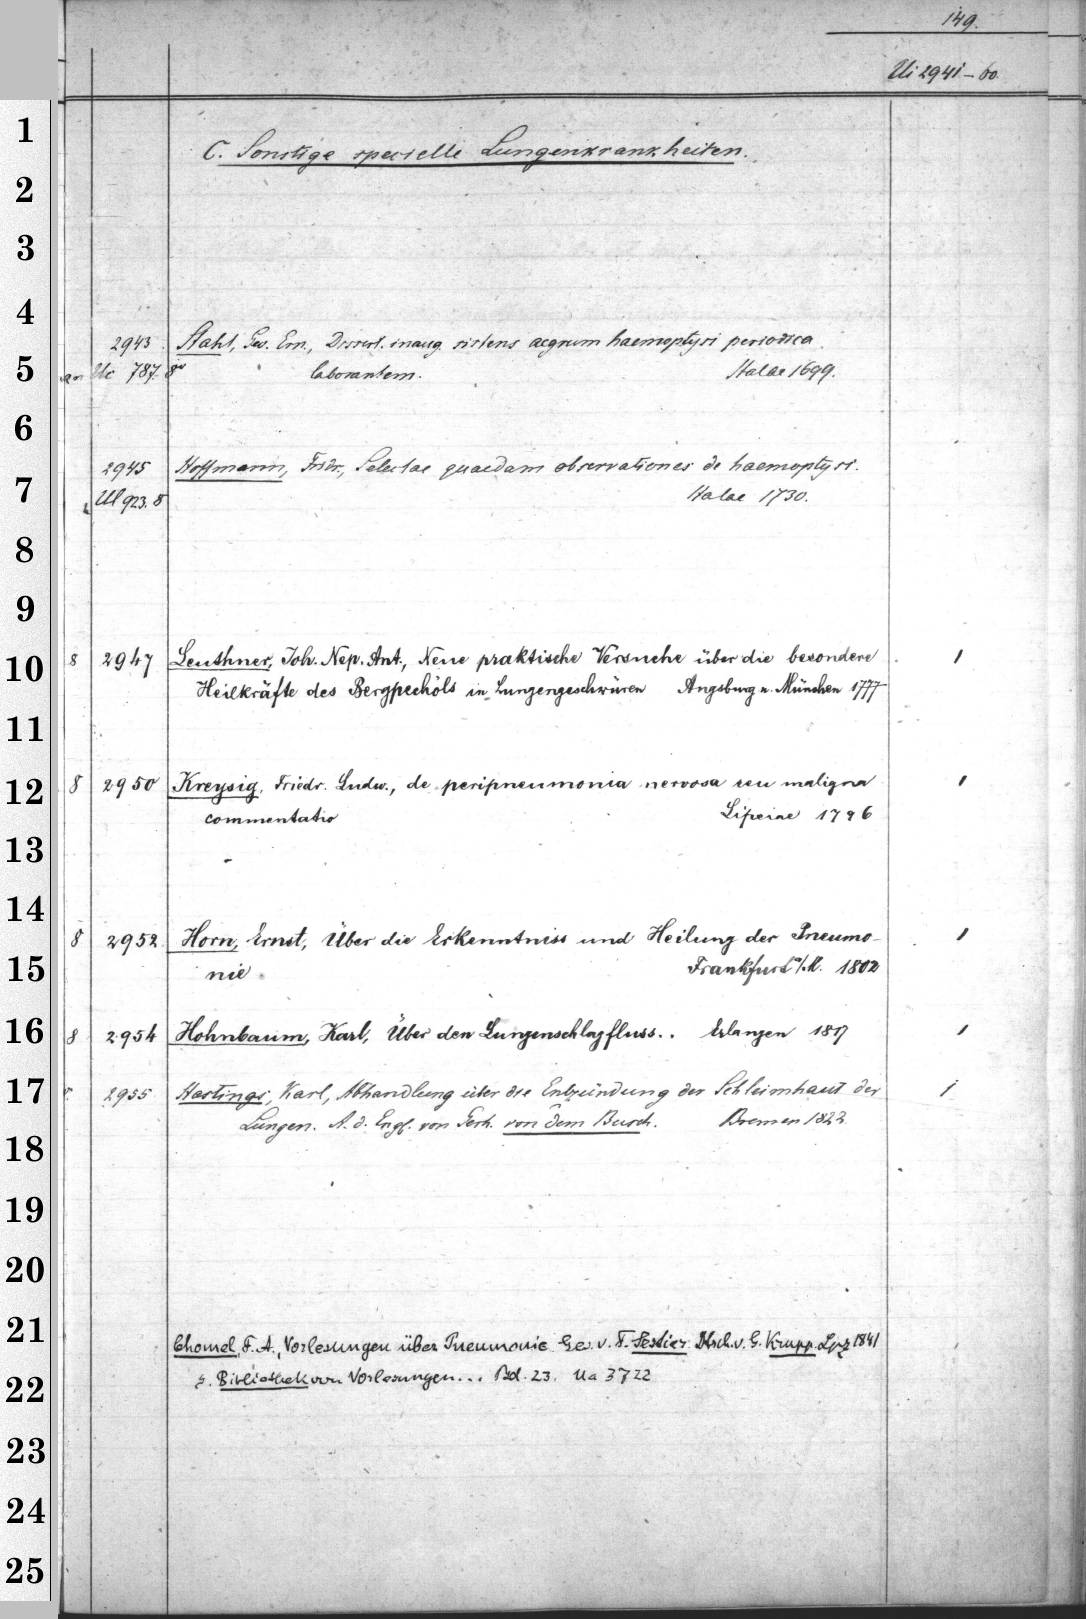 149.
Ui 2941-60
1
C. Sonstige specielle Lungenkrankheiten.
2
3
4
2943 Stahl, Ge. Ern., Dissert. inaug. sistens aegrum haemoptysi periodica
5 an Uc 787. 8° laborantem. Halae 1699.
6
2945 Hoffmann, Fridr., Selectae quaedam observationes de haemoptysi.
7 Ul 923. 8 Halae 1730.
8
9
10 8 2947 Leuthner, Joh. Nep. Ant., Neue praktische Versuche über die besondere 1
Heilkräfte des Bergpechöls in Lungengeschwüren Augsburg u. München 1777
11
12 8 2950 Kreysig, Friedr. Ludw., de peripneumonia nervosa seu maligna 1
commentatio Lipsiae 1796
13
14
8 2952 Horn, Ernst, Über die Erkenntniss und Heilung der Pneumo- 1
15 nie Frankfurt a/M. 1802
16 8 2954 Hohnbaum, Karl, Über den Lungenschlagfluss.. Erlangen 1817 1
17 2955 Hastings, Karl, Abhandlung über die Entzündung der Schleimhaut der 1
Lungen. A. d. Engl. von Gerh. von dem Busch. Bremen 1822
18
19
20
21 Chomel, F. A., Vorlesungen über Pneumonie Hrsg. v. F. Sestier. Dtsch. v. G. Krupp. Lpz 1841
22 s. Bibliothek von Vorlesungen... Bd. 23. Ua 3722
23
24
25